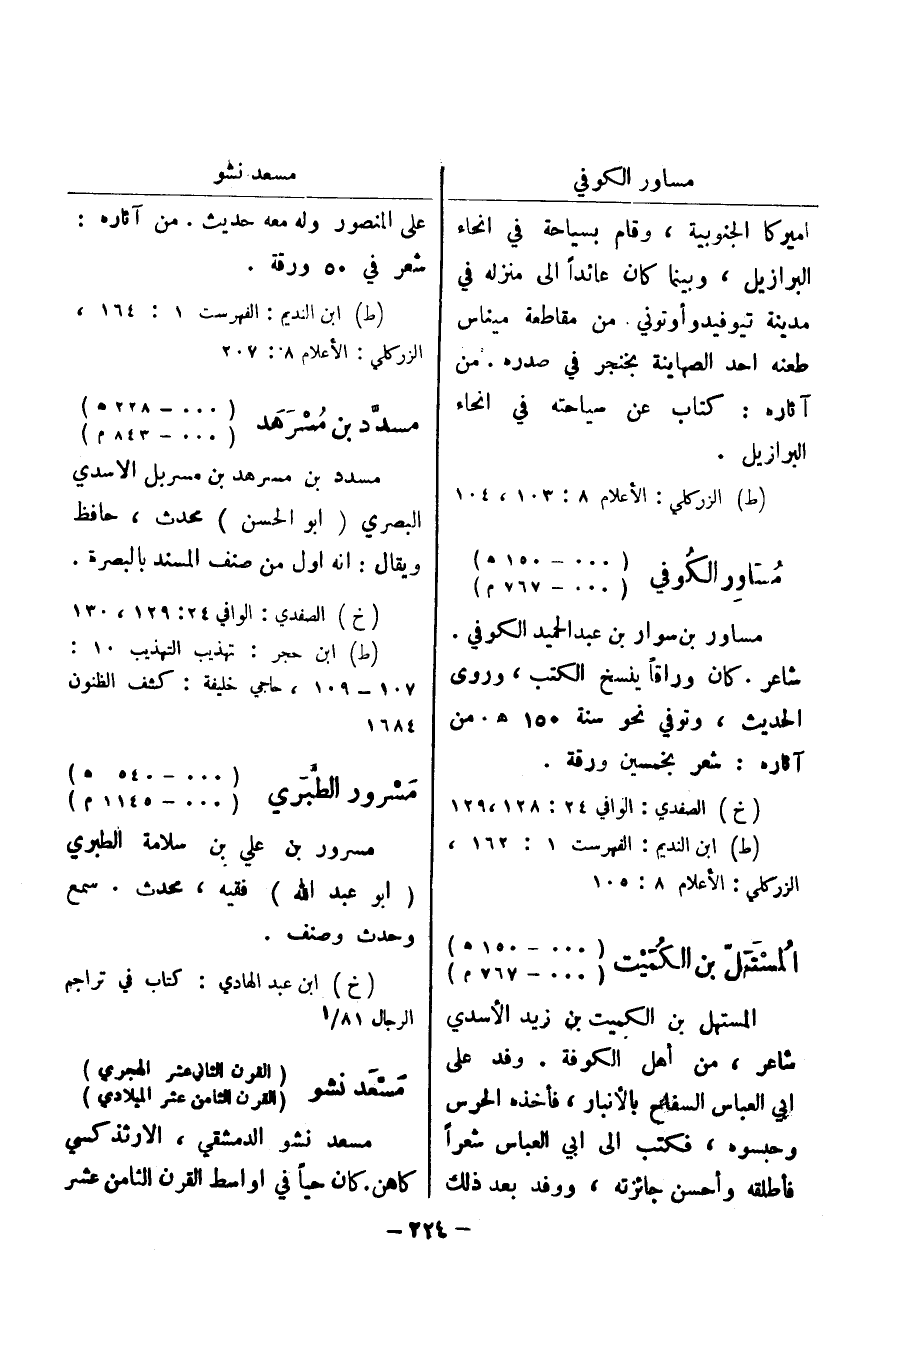 مساور الكوفي
اميركا الجنوبية ، وقام بسياحة في انحاء
البرازيل ، وبينما كان عائداً الى منزله في
مدينة تيوفيدو أوتوني . من مقاطعة ميناس
طعنه احد الصهاينة بخنجر في صدره . من
آثاره : كتاب عن سياحته في انحاء
البرازيل .
(ط) الزركلي : الأعلام ٨ : ١٠٣ ، ١٠٤
مُسَاوِر الكُوفي ( ٠٠٠ – ١٥٠ ه )
( ٠٠٠ – ٧٦٧ م )
مساور بن سوار بن عبدالحميد الكوفي .
شاعر . كان وراقاً ينسخ الكتب ، وروى
الحديث ، وتوفي نحو سنة ١٥٠ ه . من
آثاره : شعر بخمسين ورقة .
( خ ) الصفدي : الوافي ٢٤ : ١٢٨ ، ١٢٩
(ط) ابن النديم : الفهرست ١ : ١٦٢ ،
الزركلي : الأعلام ٨ : ١٠٥
المُسْتَهَلّ بن الكُمَيْت ( ٠٠٠ – ١٥٠ ه )
( ٠٠٠ – ٧٦٧ م )
المستهل بن الكميت بن زيد الأسدي
شاعر ، من أهل الكوفة . وفد على
ابي العباس السفاح بالأنبار ، فأخذه الحرس
وحبسوه ، فكتب الى ابي العباس شعراً
فأطلقه وأحسن جائزته ، ووفد بعد ذلك
مسعد نشو
على المنصور وله معه حديث . من آثاره :
شعر في ٥٠ ورقة .
(ط) ابن النديم : الفهرست ١ : ١٦٤ ،
الزركلي : الأعلام ٨ : ٢٠٧
مسدَّد بن مُسَرْهَد ( ٠٠٠ – ٢٢٨ ه )
( ٠٠٠ – ٨٤٣ م )
مسدد بن مسرهد بن مسربل الاسدي
البصري ( ابو الحسن ) محدث ، حافظ
ويقال : انه اول من صنف المسند بالبصرة .
( خ ) الصفدي : الوافي ٢٤ : ١٢٩ ، ١٣٠
(ط) ابن حجر : تهذيب التهذيب ١٠ :
١٠٧ – ١٠٩ ، حاجي خليفة : كشف الظنون
١٦٨٤
مَسْرور الطَّبَري ( ٠٠٠ – ٥٤٠ ه )
( ٠٠٠ – ١١٤٥ م )
مسرور بن علي بن سلامة الطبري
( ابو عبد الله ) فقيه ، محدث . سمع
وحدث وصنف .
( خ ) ابن عبد الهادي : كتاب في تراجم
الرجال ١/٨١
مَسْعَد نشو ( القرن الثاني عشر الهجري )
( القرن الثامن عشر الميلادي )
مسعد نشو الدمشقي ، الارثذكسي
كاهن . كان حياً في اواسط القرن الثامن عشر
– ٢٢٤ –